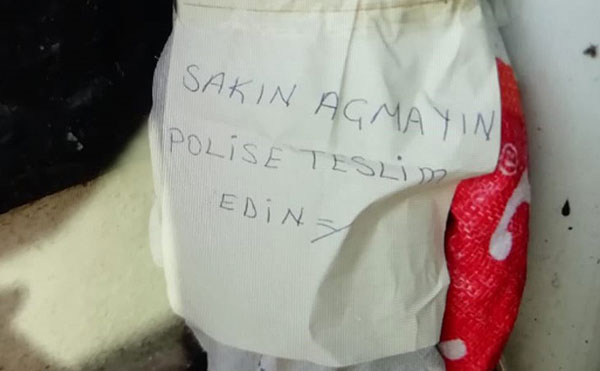 SAKIN AÇMAYIN
POLİSE TESLİM
EDİN